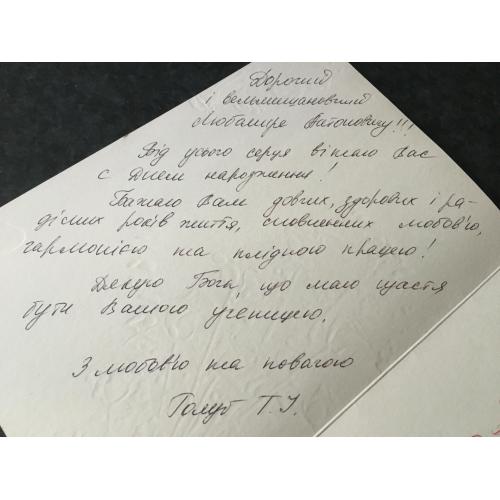 Дорогий
і вельмишановний
Любомире Антоновичу!!!
Від усього серця вітаю Вас
с Днем народження!
Бажаю Вам довгих, здорових і ра-
дісних років життя, сповнених любов'ю,
гармонією та плідною працею!
Дякую Богу, що маю щастя
бути Вашою ученицею.
З любов'ю та повагою
Голуб Т.І.